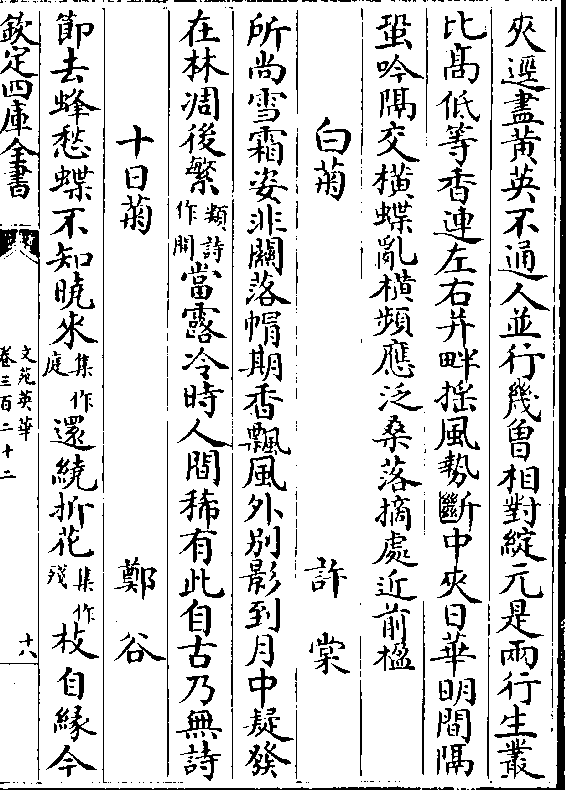 夾逕盡黄英不通人並行幾曽相對綻元是兩行生叢
比髙低等香連左右并畔揺風勢斷中夾日華明間隔
蛩吟隔交横蝶亂横頻應泛桑落摘處近前楹
白菊 許棠
所尚雪霜姿非關落帽期香飄風外别影到月中疑發
在林凋後繁類詩作開當露冷時人間稀有此自古乃無詩
十日菊 鄭谷
節去蜂愁蝶不知曉來集作庭還繞折花集作殘枝自緣今
欽定四庫全書
文苑英華
卷三百二十二
十八